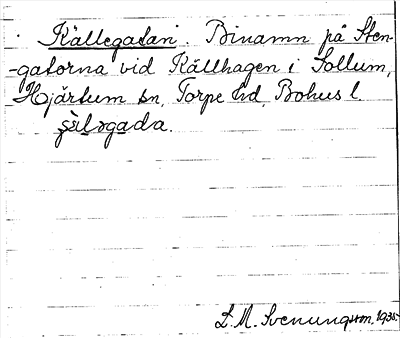 Källegatan. Binamn på Sten-
-gatorna vid Källhagen i Sollum,
Hjärtum sn, Torpe hd, Bohus l.
L.M. Svenungsson. 1935.